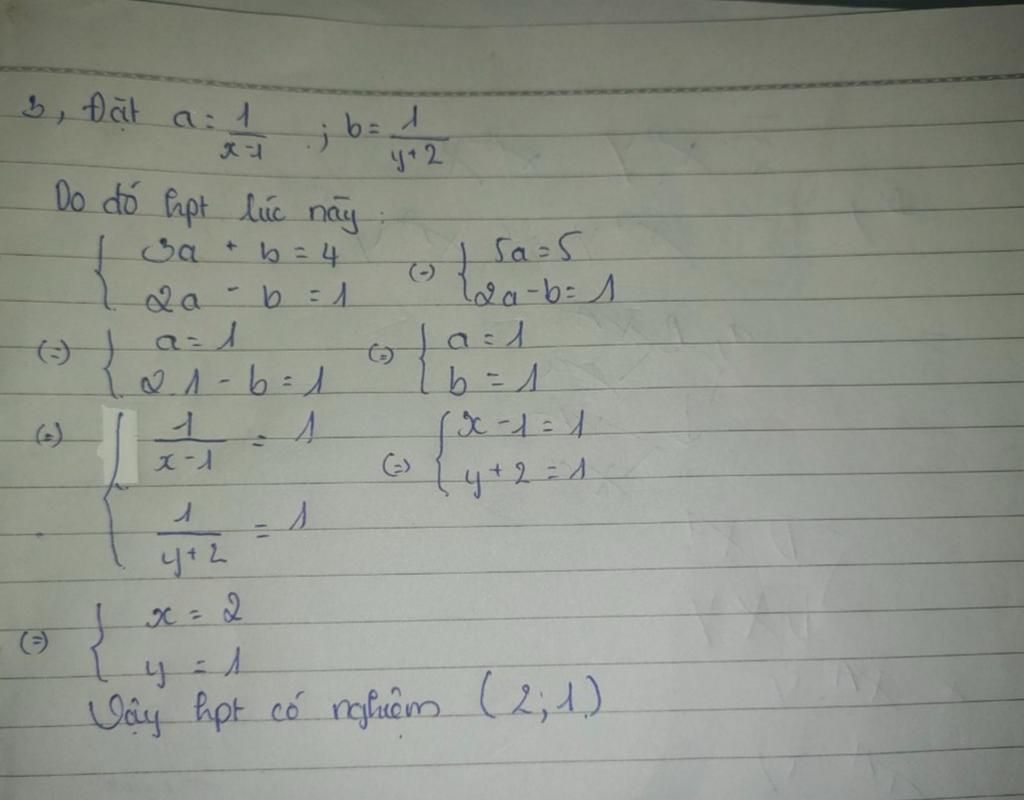 3, Đặt a = 1/(x-1) ; b = 1/(y+2)
Do đó hpt lúc này:
{ 3a + b = 4 (=) { 5a = 5
{ 2a - b = 1 { 2a - b = 1
(=) { a = 1 (=) { a = 1
{ 2.1 - b = 1 { b = 1
(=) { 1/(x-1) = 1 (=) { x - 1 = 1
{ 1/(y+2) = 1 { y + 2 = 1
(=) { x = 2
{ y = 1
Vậy hpt có nghiệm (2; 1)